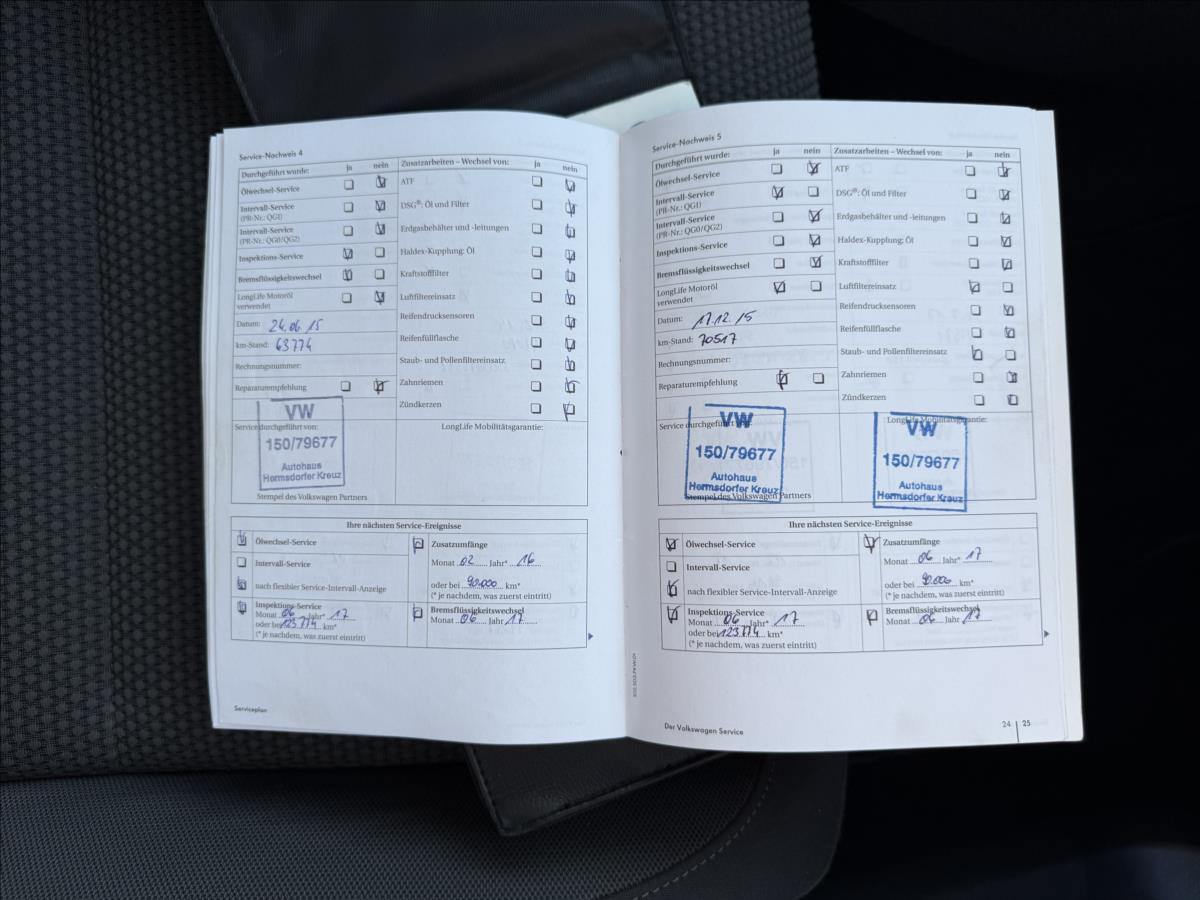 Service-Nachweis 4
Durchgeführt wurde: ja nein
Ölwechsel-Service
Intervall-Service
(PR-Nr.: QG1)
Intervall-Service
(PR-Nr.: QG0/QG2)
Inspektions-Service
Bremsflüssigkeitswechsel
LongLife Motoröl
verwendet
Datum: 24.06.15
km-Stand: 63774
Rechnungsnummer:
Reparaturempfehlung
Zusatzarbeiten – Wechsel von: ja nein
ATF
DSG®: Öl und Filter
Erdgasbehälter und -leitungen
Haldex-Kupplung: Öl
Kraftstofffilter
Luftfiltereinsatz
Reifendrucksensoren
Reifenfüllflasche
Staub- und Pollenfiltereinsatz
Zahnriemen
Zündkerzen
Service durchgeführt von:
VW
150/79677
Autohaus
Hermsdorfer Kreuz
Stempel des Volkswagen Partners
LongLife Mobilitätsgarantie:
Ihre nächsten Service-Ereignisse
Ölwechsel-Service
Intervall-Service
nach flexibler Service-Intervall-Anzeige
Inspektions-Service
Monat 06 Jahr* 17
oder bei 123.774 km*
(* je nachdem, was zuerst eintritt)
Zusatzumfänge
Monat 02 Jahr* 16
oder bei 90.000 km*
(* je nachdem, was zuerst eintritt)
Bremsflüssigkeitswechsel
Monat 06 Jahr 17
Serviceplan
Service-Nachweis 5
Durchgeführt wurde: ja nein
Ölwechsel-Service
Intervall-Service
(PR-Nr.: QG1)
Intervall-Service
(PR-Nr.: QG0/QG2)
Inspektions-Service
Bremsflüssigkeitswechsel
LongLife Motoröl
verwendet
Datum: 17.12.15
km-Stand: 70517
Rechnungsnummer:
Reparaturempfehlung
Zusatzarbeiten – Wechsel von: ja nein
ATF
DSG®: Öl und Filter
Erdgasbehälter und -leitungen
Haldex-Kupplung: Öl
Kraftstofffilter
Luftfiltereinsatz
Reifendrucksensoren
Reifenfüllflasche
Staub- und Pollenfiltereinsatz
Zahnriemen
Zündkerzen
Service durchgeführt von:
VW
150/79677
Autohaus
Hermsdorfer Kreuz
Stempel des Volkswagen Partners
LongLife Mobilitätsgarantie:
VW
150/79677
Autohaus
Hermsdorfer Kreuz
Ihre nächsten Service-Ereignisse
Ölwechsel-Service
Intervall-Service
nach flexibler Service-Intervall-Anzeige
Inspektions-Service
Monat 06 Jahr* 17
oder bei 123.774 km*
(* je nachdem, was zuerst eintritt)
Zusatzumfänge
Monat 06 Jahr* 17
oder bei 90.000 km*
(* je nachdem, was zuerst eintritt)
Bremsflüssigkeitswechsel
Monat 06 Jahr 17
Der Volkswagen Service
24 | 25